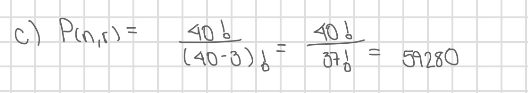 c) P(n,r) = 40! / (40-3)! = 40! / 37! = 59280